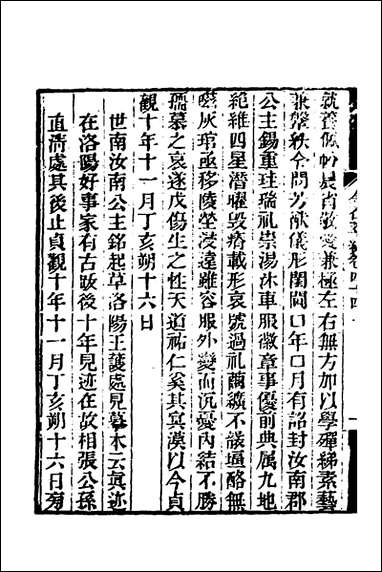 就養佩帉晨省敬愛兼極左右無方加以學殫綈素藝
兼鞶紩令問芳猷儀形閨閫口年口月有詔封汝南郡
公主錫重珪瑞礼崇湯沐車服徽章事優前典属九地
絶維四星潛曜毁瘠載形哀號過礼繭纊不袨塩酪無
灰琯亟移陵塋浸遠雖容服外變而沉憂内結不勝
孺慕之哀遂戊傷生之性天道祐仁奚其冥漠以今貞
觀十年十一月丁亥朔十六日
世南汝南公主銘起草洛陽王護處見摹本云眞迹
在洛陽好事家有古跋後十年見迹在故相張公孫
直清處其後止貞觀十年十一月丁亥朔十六日旁